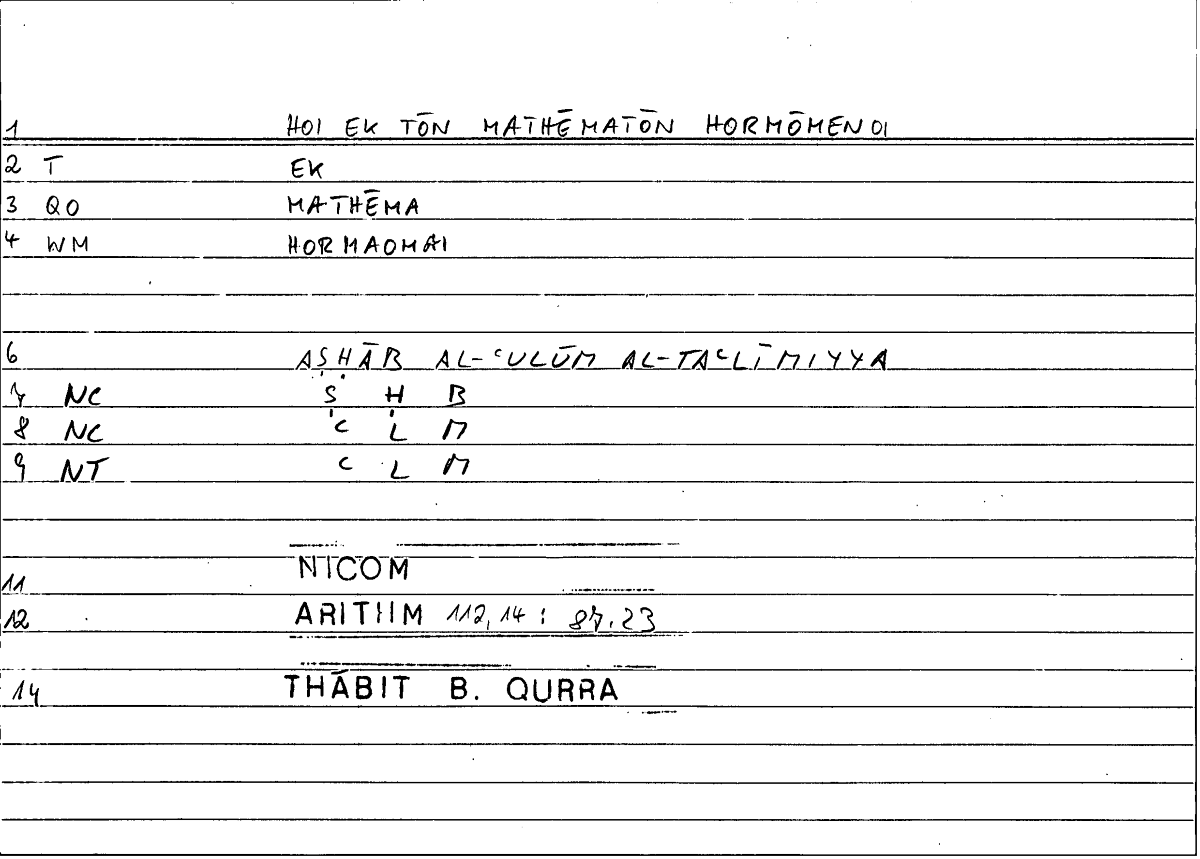 1 HOI EK TŌN MATHĒMATŌN HORMŌMENOI
2 T EK
3 QO MATHĒMA
4 WM HORMAOMAI
6 AṢḤĀB AL-ʿULŪM AL-TAʿLĪMIYYA
7 NC Ṣ Ḥ B
8 NC ʿ L M
9 NT ʿ L M
11 NICOM
12 ARITHM 112,14 : 87.23
14 THĀBIT B. QURRA